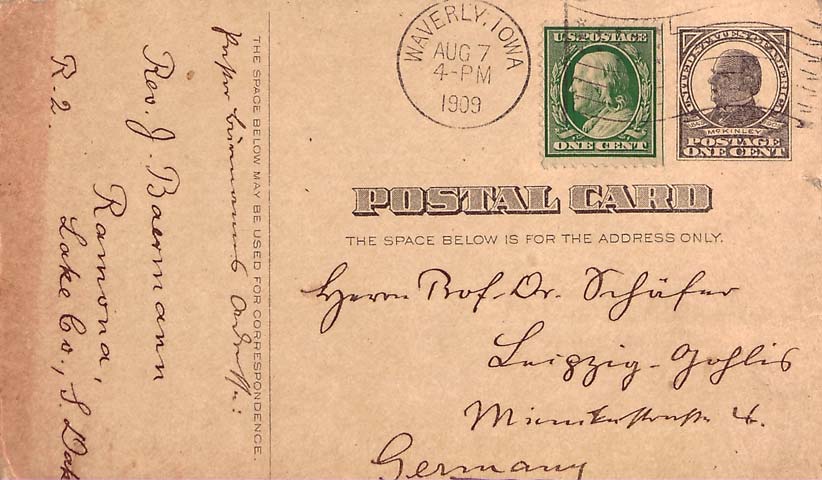 WAVERLY, IOWA
AUG 7
4-PM
1909
U.S. POSTAGE
ONE CENT
UNITED STATES OF AMERICA
McKINLEY
POSTAGE
ONE CENT
POSTAL CARD
THE SPACE BELOW IS FOR THE ADDRESS ONLY.
Herrn Prof. Dr. Schäfer
Leipzig-Gohlis
4.
Germany
THE SPACE BELOW MAY BE USED FOR CORRESPONDENCE.
Adresse:
Rev. J. Baermann
Ramona,
Lake Co., S. Dak
R-2.